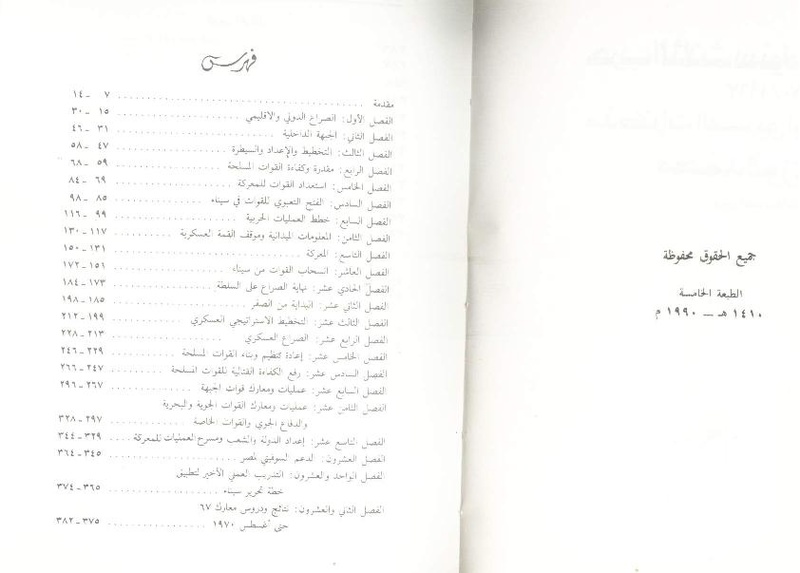 جميع الحقوق محفوظة
الطبعة الخامسة
١٤١٠ هـ — ١٩٩٠ م
فهرس
مقدمة ٧ - ١٤
الفصل الأول: الصراع الدولي والاقليمي ١٥ - ٣٠
الفصل الثاني: الجبهة الداخلية ٣١ - ٤٦
الفصل الثالث: التخطيط والإعداد والسيطرة ٤٧ - ٥٨
الفصل الرابع: مقدرة وكفاءة القوات المسلحة ٥٩ - ٦٨
الفصل الخامس: استعداد القوات للمعركة ٦٩ - ٨٤
الفصل السادس: الفتح التعبوي للقوات في سيناء ٨٥ - ٩٨
الفصل السابع: خطط العمليات الحربية ٩٩ - ١١٦
الفصل الثامن: المعلومات الميدانية وموقف القمة العسكرية ١١٧ - ١٣٠
الفصل التاسع: المعركة ١٣١ - ١٥٠
الفصل العاشر: انسحاب القوات من سيناء ١٥١ - ١٧٢
الفصل الحادي عشر: نهاية الصراع على السلطة ١٧٣ - ١٨٤
الفصل الثاني عشر: البداية من الصفر ١٨٥ - ١٩٨
الفصل الثالث عشر: التخطيط الاستراتيجي العسكري ١٩٩ - ٢١٢
الفصل الرابع عشر: الصراع العسكري ٢١٣ - ٢٢٨
الفصل الخامس عشر: إعادة تنظيم وبناء القوات المسلحة ٢٢٩ - ٢٤٦
الفصل السادس عشر: رفع الكفاءة القتالية للقوات المسلحة ٢٤٧ - ٢٦٦
الفصل السابع عشر: عمليات ومعارك قوات الجبهة ٢٦٧ - ٢٩٦
الفصل الثامن عشر: عمليات ومعارك القوات الجوية والبحرية
والدفاع الجوي والقوات الخاصة ٢٩٧ - ٣٢٨
الفصل التاسع عشر: إعداد الدولة والشعب ومسرح العمليات للمعركة ٣٢٩ - ٣٤٤
الفصل العشرون: الدعم السوفيتي لمصر ٣٤٥ - ٣٦٤
الفصل الواحد والعشرون: التدريب العملي الأخير لتطبيق
خطة تحرير سيناء ٣٦٥ - ٣٧٤
الفصل الثاني والعشرون: نتائج ودروس معارك ٦٧
حتى أغسطس ١٩٧٠ ٣٧٥ - ٣٨٢